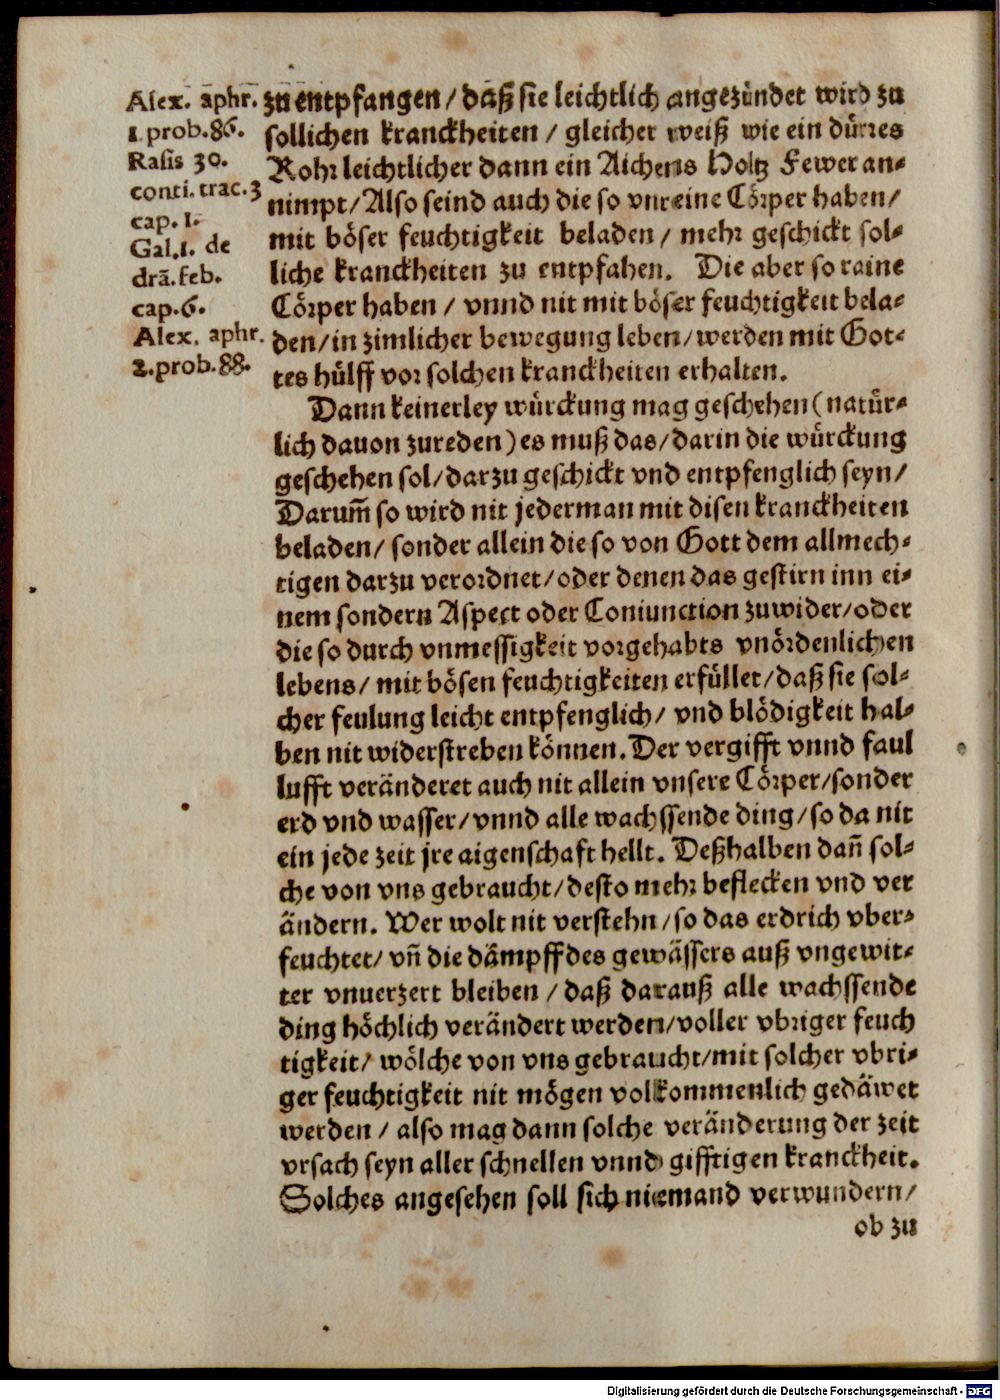 Alex. aphr.
1. prob. 86.
Rasis 30.
conti. trac. 3
cap. 1.
Gal. 1. de
drã. feb.
cap. 6.
Alex. aphr.
2. prob. 88.
zu entpfangen / daß sie leichtlich angezündet wird zu
sollichen kranckheiten / gleicher weiß wie ein dürres
Rohr leichtlicher dann ein Aichens Holtz Fewer an-
nimpt / Also seind auch die so vnreine Cörper haben /
mit böser feuchtigkeit beladen / mehr geschickt sol-
liche kranckheiten zu entpfahen. Die aber so raine
Cörper haben / vnnd nit mit böser feuchtigkeit bela-
den / in zimlicher bewegung leben / werden mit Got-
tes hülff vor solchen kranckheiten erhalten.
Dann keinerley würckung mag geschehen ( natür-
lich dauon zureden ) es muß das / darin die würckung
geschehen sol / darzu geschickt vnd entpfenglich seyn /
Darum̃ so wird nit jederman mit disen kranckheiten
beladen / sonder allein die so von Gott dem allmech-
tigen darzu verordnet / oder denen das gestirn inn ei-
nem sondern Aspect oder Coniunction zuwider / oder
die so durch vnmessigkeit vorgehabts vnördenlichen
lebens / mit bösen feuchtigkeiten erfüllet / daß sie sol-
cher feulung leicht entpfenglich / vnd blödigkeit hal-
ben nit widerstreben können. Der vergifft vnnd faul
lufft veränderet auch nit allein vnsere Cörper / sonder
erd vnd wasser / vnnd alle wachssende ding / so da nit
ein jede zeit jre aigenschaft hellt. Deßhalben dañ sol-
che von vns gebraucht / desto mehr beflecken vnd ver
ändern. Wer wolt nit verstehn / so das erdrich vber-
feuchtet / vñ die dämpff des gewässers auß vngewit-
ter vnuerzert bleiben / daß darauß alle wachssende
ding höchlich verändert werden / voller vbriger feuch
tigkeit / wölche von vns gebraucht / mit solcher vbri-
ger feuchtigkeit nit mögen volkommenlich gedäwet
werden / also mag dann solche veränderung der zeit
vrsach seyn aller schnellen vnnd gifftigen kranckheit.
Solches angesehen soll sich niemand verwundern /
ob zu
Digitalisierung gefördert durch die Deutsche Forschungsgemeinschaft - DFG